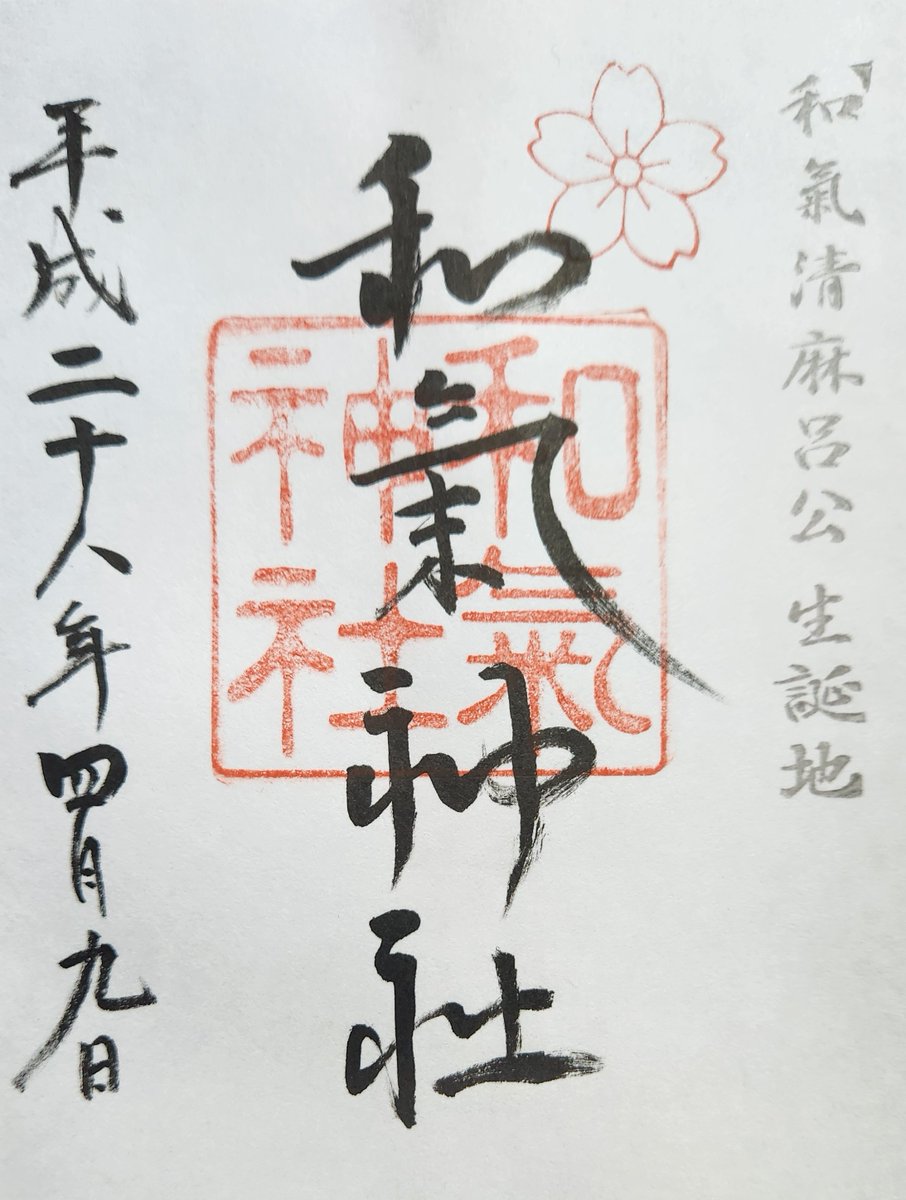 和氣清麻呂公 生誕地
和氣神社
和氣
神社
平成二十八年四月九日